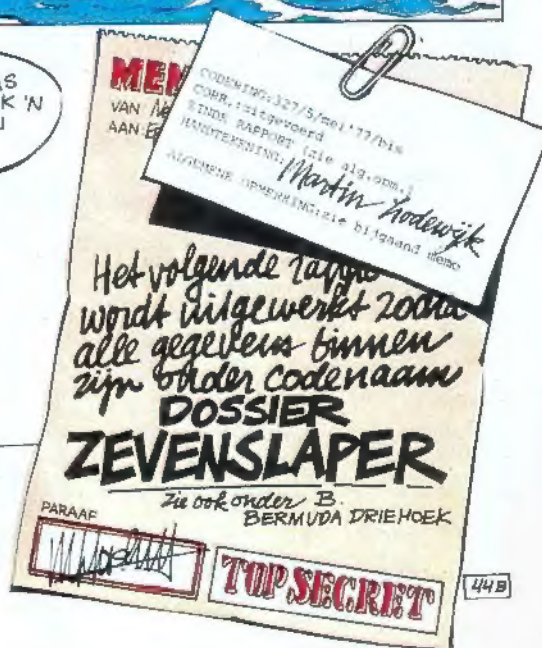 S
K 'N
CODERING:327/5/mei'77/bis
CORR.:uitgevoerd
EINDE RAPPORT (zie alg.opm.)
HANDTEKENING:
Martin Lodewijk
ALGEMENE OPMERKING:zie bijgaand memo
VAN
AAN:
Het volgende
wordt uitgewerkt zodra
alle gegevens binnen
zijn onder codenaam
DOSSIER
ZEVENSLAPER
Zie ook onder B.
BERMUDA DRIEHOEK
PARAAF
TOP SECRET
44B